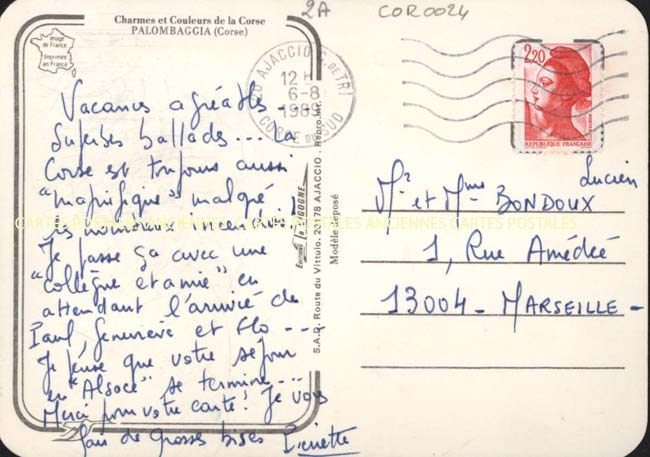 2A
COR0024
Charmes et Couleurs de la Corse
PALOMBAGGIA (Corse)
Image
de France
Imprimée
en France
20 AJACCIO C. DE TRI
12 H
6-8
1989
CORSE DU SUD
2,20
REPUBLIQUE FRANÇAISE
Vacances agréables...
Superbes ballades... La
Corse est toujours aussi
"magnifique" malgré
les nombreux incendies!
Je passe ça avec une
"collègue et amie" en
attendant l'arrivée de
Paul, Geneviève et Flo...
Je pense que votre séjour
en "Alsace" se termine...
Merci pour votre carte! Je vous
fais de grosses bises Pierrette
Editions la CIGOGNE
S.A.R. Route du Vittulo. 20178 AJACCIO - Repro. Int.
Modèle déposé
Mr et Mme BONDOUX Lucien
1, Rue Amédée
13004 - MARSEILLE -
CARTES POSTALES ANCIENNES CARTES POSTALES ANCIENNES CARTES POSTALES